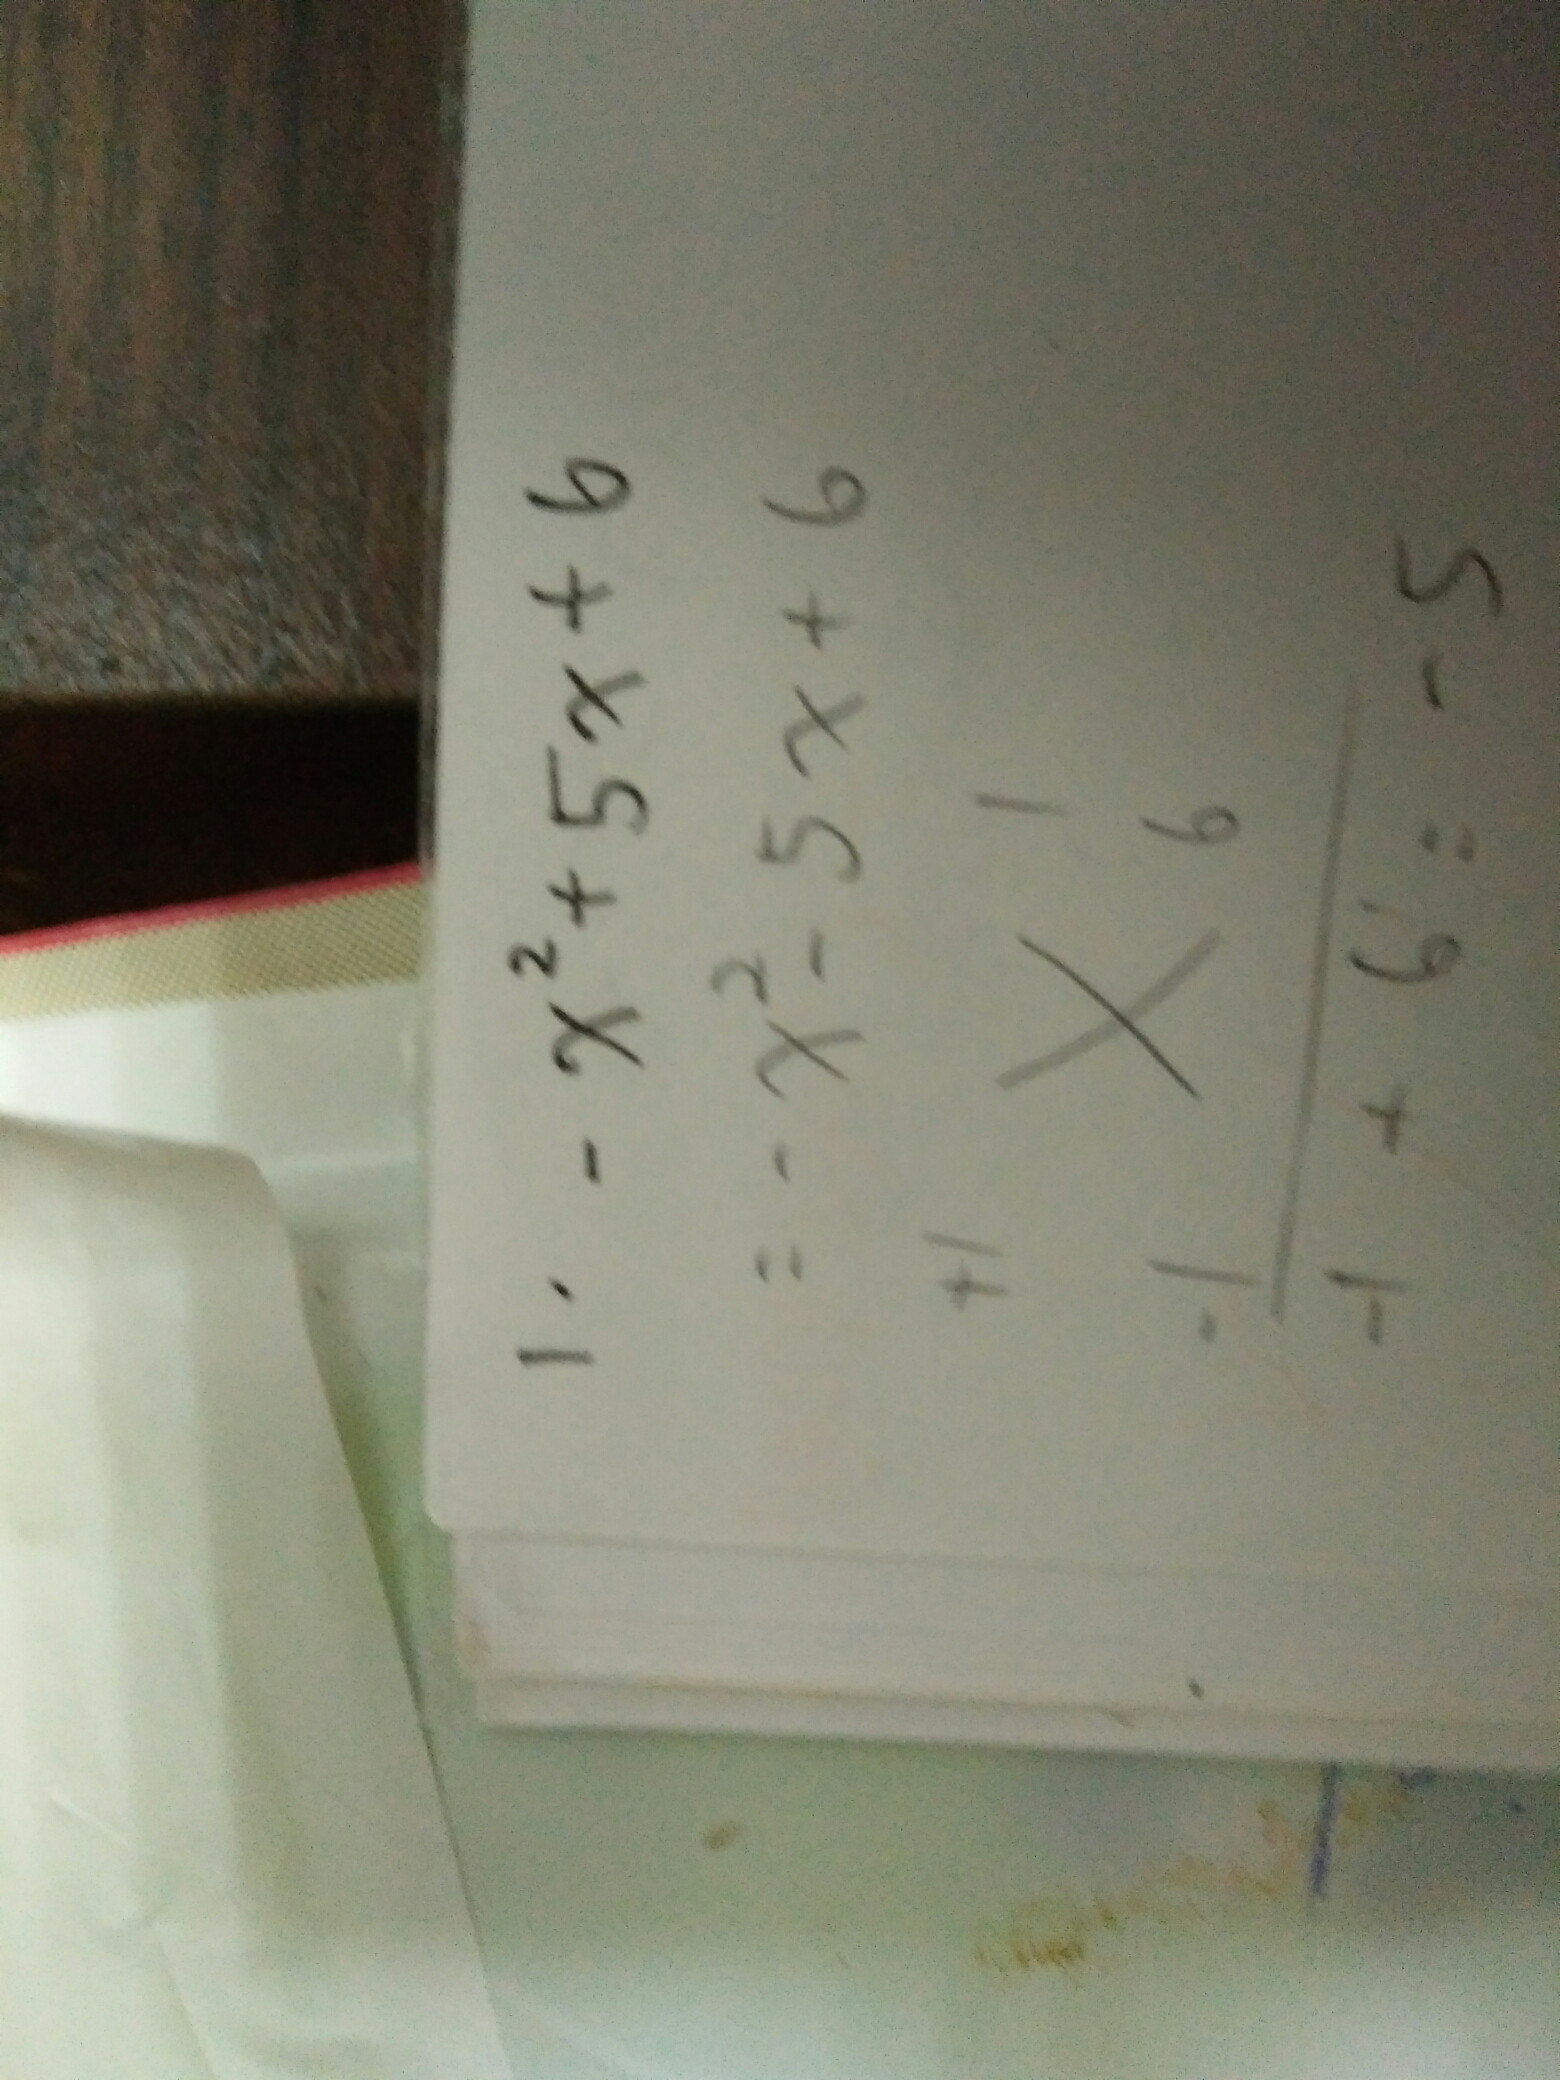 1. - x² + 5x + 6
= - x² - 5x + 6
+1 1
-1 6
-1 + 6 = -5